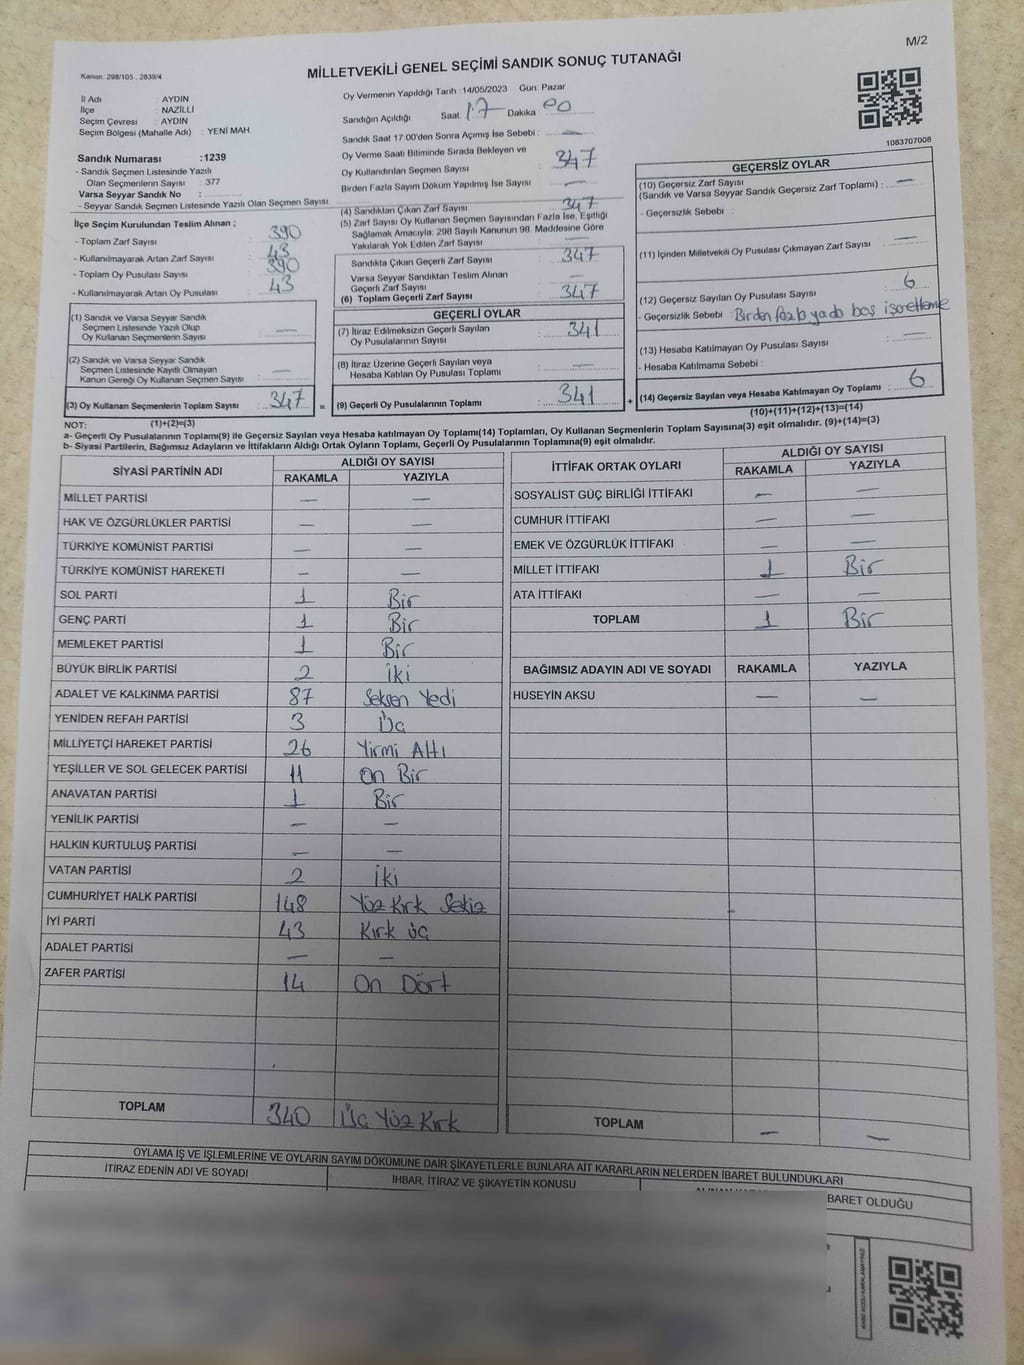 M/2
Kanun. 298/105 , 2839/4
MİLLETVEKİLİ GENEL SEÇİMİ SANDIK SONUÇ TUTANAĞI
İl Adı : AYDIN
İlçe : NAZİLLİ
Seçim Çevresi : AYDIN
Seçim Bölgesi (Mahalle Adı) : YENİ MAH.
Sandık Numarası :1239
- Sandık Seçmen Listesinde Yazılı
Olan Seçmenlerin Sayısı : 377
Varsa Seyyar Sandık No :
- Seyyar Sandık Seçmen Listesinde Yazılı Olan Seçmen Sayısı
İlçe Seçim Kurulundan Teslim Alınan ;
- Toplam Zarf Sayısı : 390
- Kullanılmayarak Artan Zarf Sayısı : 43
- Toplam Oy Pusulası Sayısı : 390
- Kullanılmayarak Artan Oy Pusulası : 43
(1) Sandık ve Varsa Seyyar Sandık
Seçmen Listesinde Yazılı Olup
Oy Kullanan Seçmenlerin Sayısı : —
(2) Sandık ve Varsa Seyyar Sandık
Seçmen Listesinde Kayıtlı Olmayan
Kanun Gereği Oy Kullanan Seçmen Sayısı : —
(3) Oy Kullanan Seçmenlerin Toplam Sayısı : 347
(1)+(2)=(3)
Oy Vermenin Yapıldığı Tarih : 14/05/2023 Gün: Pazar
Sandığın Açıldığı Saat 17 Dakika 00
Sandık Saat 17:00'den Sonra Açımış İse Sebebi : —
Oy Verme Saati Bitiminde Sırada Bekleyen ve
Oy Kullandırılan Seçmen Sayısı : 347
Birden Fazla Sayım Döküm Yapılmış İse Sayısı : —
(4) Sandıktan Çıkan Zarf Sayısı : 347
(5) Zarf Sayısı Oy Kullanan Seçmen Sayısından Fazla İse, Eşitliği
Sağlamak Amacıyla; 298 Sayılı Kanunun 98. Maddesine Göre
Yakılarak Yok Edilen Zarf Sayısı : —
Sandıkta Çıkan Geçerli Zarf Sayısı : 347
Varsa Seyyar Sandıktan Teslim Alınan
Geçerli Zarf Sayısı : —
(6) Toplam Geçerli Zarf Sayısı : 347
GEÇERLİ OYLAR
(7) İtiraz Edilmeksizin Geçerli Sayılan
Oy Pusulalarının Sayısı : 341
(8) İtiraz Üzerine Geçerli Sayılan veya
Hesaba Katılan Oy Pusulası Toplamı : —
= (9) Geçerli Oy Pusulalarının Toplamı : 341 +
1083707008
GEÇERSİZ OYLAR
(10) Geçersiz Zarf Sayısı
(Sandık ve Varsa Seyyar Sandık Geçersiz Zarf Toplamı) : —
- Geçersizlik Sebebi :
(11) İçinden Milletvekili Oy Pusulası Çıkmayan Zarf Sayısı : —
(12) Geçersiz Sayılan Oy Pusulası Sayısı : 6
- Geçersizlik Sebebi : Birden fazla yada boş işaretleme
(13) Hesaba Katılmayan Oy Pusulası Sayısı : —
- Hesaba Katılmama Sebebi :
(14) Geçersiz Sayılan veya Hesaba Katılmayan Oy Toplamı : 6
(10)+(11)+(12)+(13)=(14)
NOT:
a- Geçerli Oy Pusulalarının Toplamı(9) ile Geçersiz Sayılan veya Hesaba katılmayan Oy Toplamı(14) Toplamları, Oy Kullanan Seçmenlerin Toplam Sayısına(3) eşit olmalıdır. (9)+(14)=(3)
b- Siyasi Partilerin, Bağımsız Adayların ve İttifakların Aldığı Ortak Oyların Toplamı, Geçerli Oy Pusulalarının Toplamına(9) eşit olmalıdır.
SİYASİ PARTİNİN ADI ALDIĞI OY SAYISI
RAKAMLA YAZIYLA
MİLLET PARTİSİ — —
HAK VE ÖZGÜRLÜKLER PARTİSİ — —
TÜRKİYE KOMÜNİST PARTİSİ — —
TÜRKİYE KOMÜNİST HAREKETİ — —
SOL PARTİ 1 Bir
GENÇ PARTİ 1 Bir
MEMLEKET PARTİSİ 1 Bir
BÜYÜK BİRLİK PARTİSİ 2 İki
ADALET VE KALKINMA PARTİSİ 87 Seksen Yedi
YENİDEN REFAH PARTİSİ 3 Üç
MİLLİYETÇİ HAREKET PARTİSİ 26 Yirmi Altı
YEŞİLLER VE SOL GELECEK PARTİSİ 11 On Bir
ANAVATAN PARTİSİ 1 Bir
YENİLİK PARTİSİ — —
HALKIN KURTULUŞ PARTİSİ — —
VATAN PARTİSİ 2 İki
CUMHURİYET HALK PARTİSİ 148 Yüz Kırk Sekiz
İYİ PARTİ 43 Kırk üç
ADALET PARTİSİ — —
ZAFER PARTİSİ 14 On Dört
TOPLAM 340 Üç Yüz Kırk
İTTİFAK ORTAK OYLARI ALDIĞI OY SAYISI
RAKAMLA YAZIYLA
SOSYALİST GÜÇ BİRLİĞİ İTTİFAKI — —
CUMHUR İTTİFAKI — —
EMEK VE ÖZGÜRLÜK İTTİFAKI — —
MİLLET İTTİFAKI 1 Bir
ATA İTTİFAKI — —
TOPLAM 1 Bir
BAĞIMSIZ ADAYIN ADI VE SOYADI RAKAMLA YAZIYLA
HÜSEYİN AKSU — —
TOPLAM — —
OYLAMA İŞ VE İŞLEMLERİNE VE OYLARIN SAYIM DÖKÜMÜNE DAİR ŞİKAYETLERLE BUNLARA AİT KARARLARIN NELERDEN İBARET BULUNDUKLARI
İTİRAZ EDENİN ADI VE SOYADI İHBAR, İTİRAZ VE ŞİKAYETİN KONUSU BARET OLDUĞU